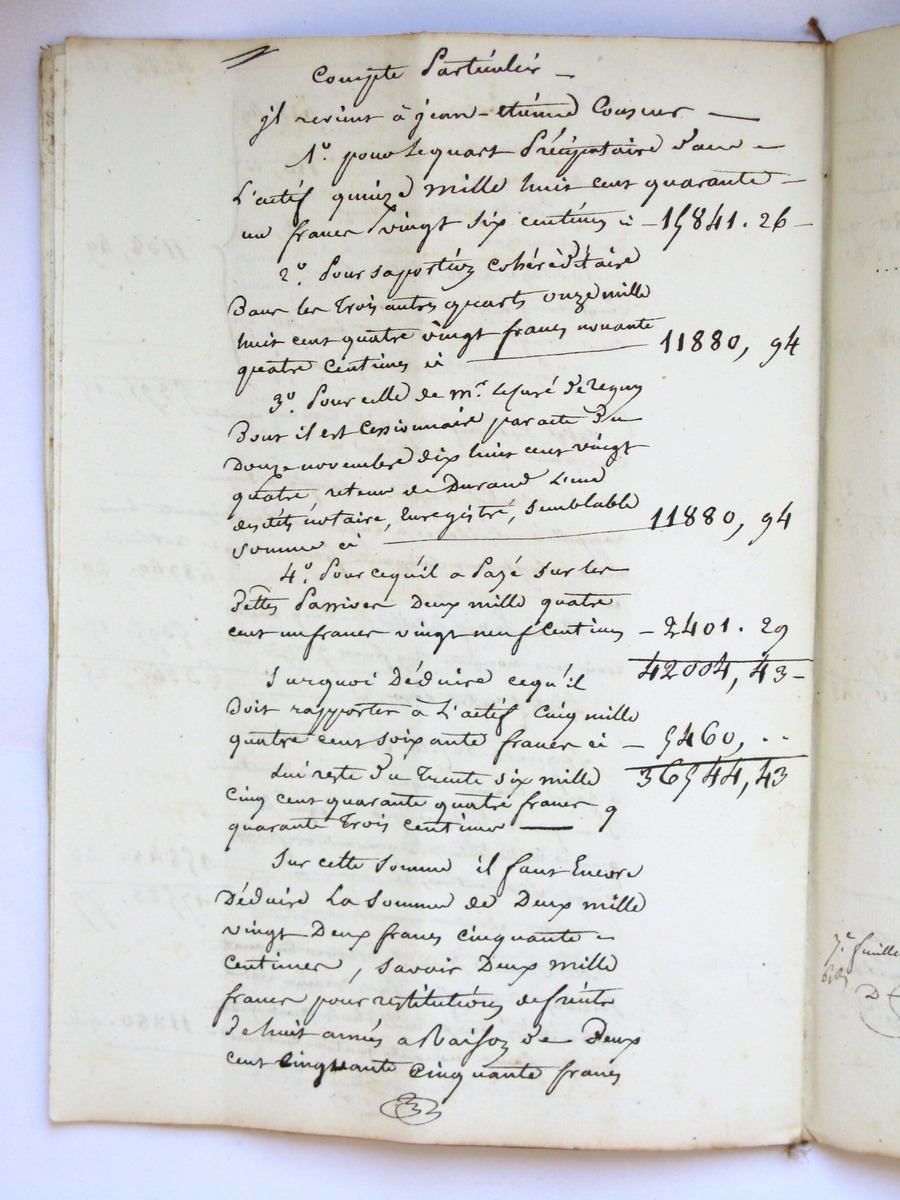 Compte Particulier —
jl revient à jean-etienne Couseur —
1º. pour le quart Précipotaire dans
L'actif quinze mille huit cent quarante
un francs vingt six centimes ci — 15841. 26 —
2º. Pour sa portion cohéréditaire
Dans les trois autres quarts onze mille
huit cent quatre vingt francs nonante
quatre centimes ci — 11880, 94
3º. Pour celle de mr. le curé de
Dont il est Cessionnaire par acte Du
Douze novembre dix huit cent vingt
quatre, retenu de Durand L'une
des dits notaire, Enregistré, semblable
somme ci — 11880, 94
4º. Pour ce qu'il a Payé sur les
Dettes Passives Deux mille quatre
cent un francs vingt neuf Centimes — 2401. 29
42004, 43 —
Surquoi Déduire ce qu'il
Doit rapporter à L'actif Cinq mille
quatre cent soixante francs ci — 5460, ..
Lui reste Du trente six mille 36544, 43
Cinq cent quarante quatre francs
quarante trois centimes —
Sur cette somme il faut Encore
Déduire La somme de Deux mille
vingt Deux francs cinquante
centimes, savoir Deux mille
francs pour restitution de fruits
De huit années a Raison de Deux
cent cinquante cinquante francs
7e. feuille